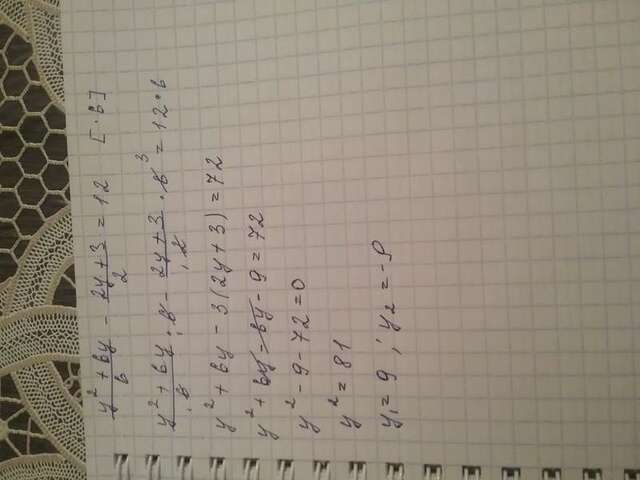 (y² + 6y)/6 - (2y + 3)/2 = 12 [·6]
(y² + 6y)/6 · 6 - (2y + 3)/2 · 6³ = 12 · 6
y² + 6y - 3(2y + 3) = 72
y² + 6y - 6y - 9 = 72
y² - 9 - 72 = 0
y² = 81
y₁ = 9 ; y₂ = -9